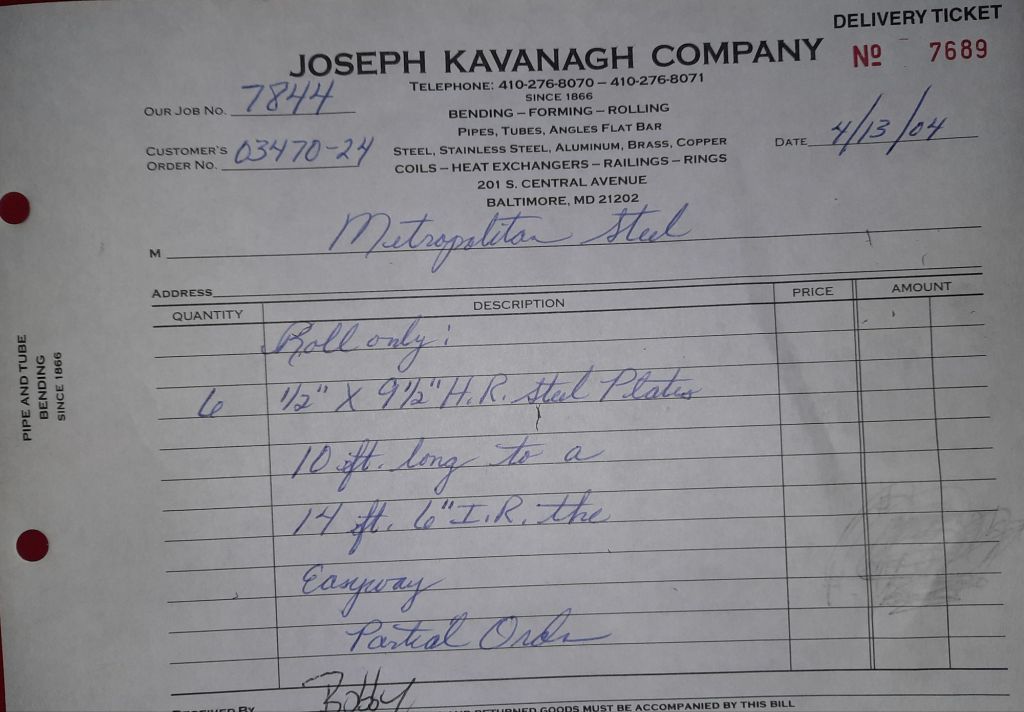 DELIVERY TICKET
JOSEPH KAVANAGH COMPANY
Nº 7689
TELEPHONE: 410-276-8070 – 410-276-8071
SINCE 1866
OUR JOB NO. 7844
BENDING – FORMING – ROLLING
PIPES, TUBES, ANGLES FLAT BAR
CUSTOMER'S ORDER NO. 03470-24
DATE 4/13/04
STEEL, STAINLESS STEEL, ALUMINUM, BRASS, COPPER
COILS – HEAT EXCHANGERS – RAILINGS – RINGS
201 S. CENTRAL AVENUE
BALTIMORE, MD 21202
M Metropolitan Steel
ADDRESS
QUANTITY DESCRIPTION PRICE AMOUNT
Roll only:
6 1/2" X 9 1/2" H.R. Steel Plates
10 ft. long to a
14 ft. 6" I.R. the
Easyway
Partial Order
RECEIVED BY Bobby
AND RETURNED GOODS MUST BE ACCOMPANIED BY THIS BILL
PIPE AND TUBE
BENDING
SINCE 1866